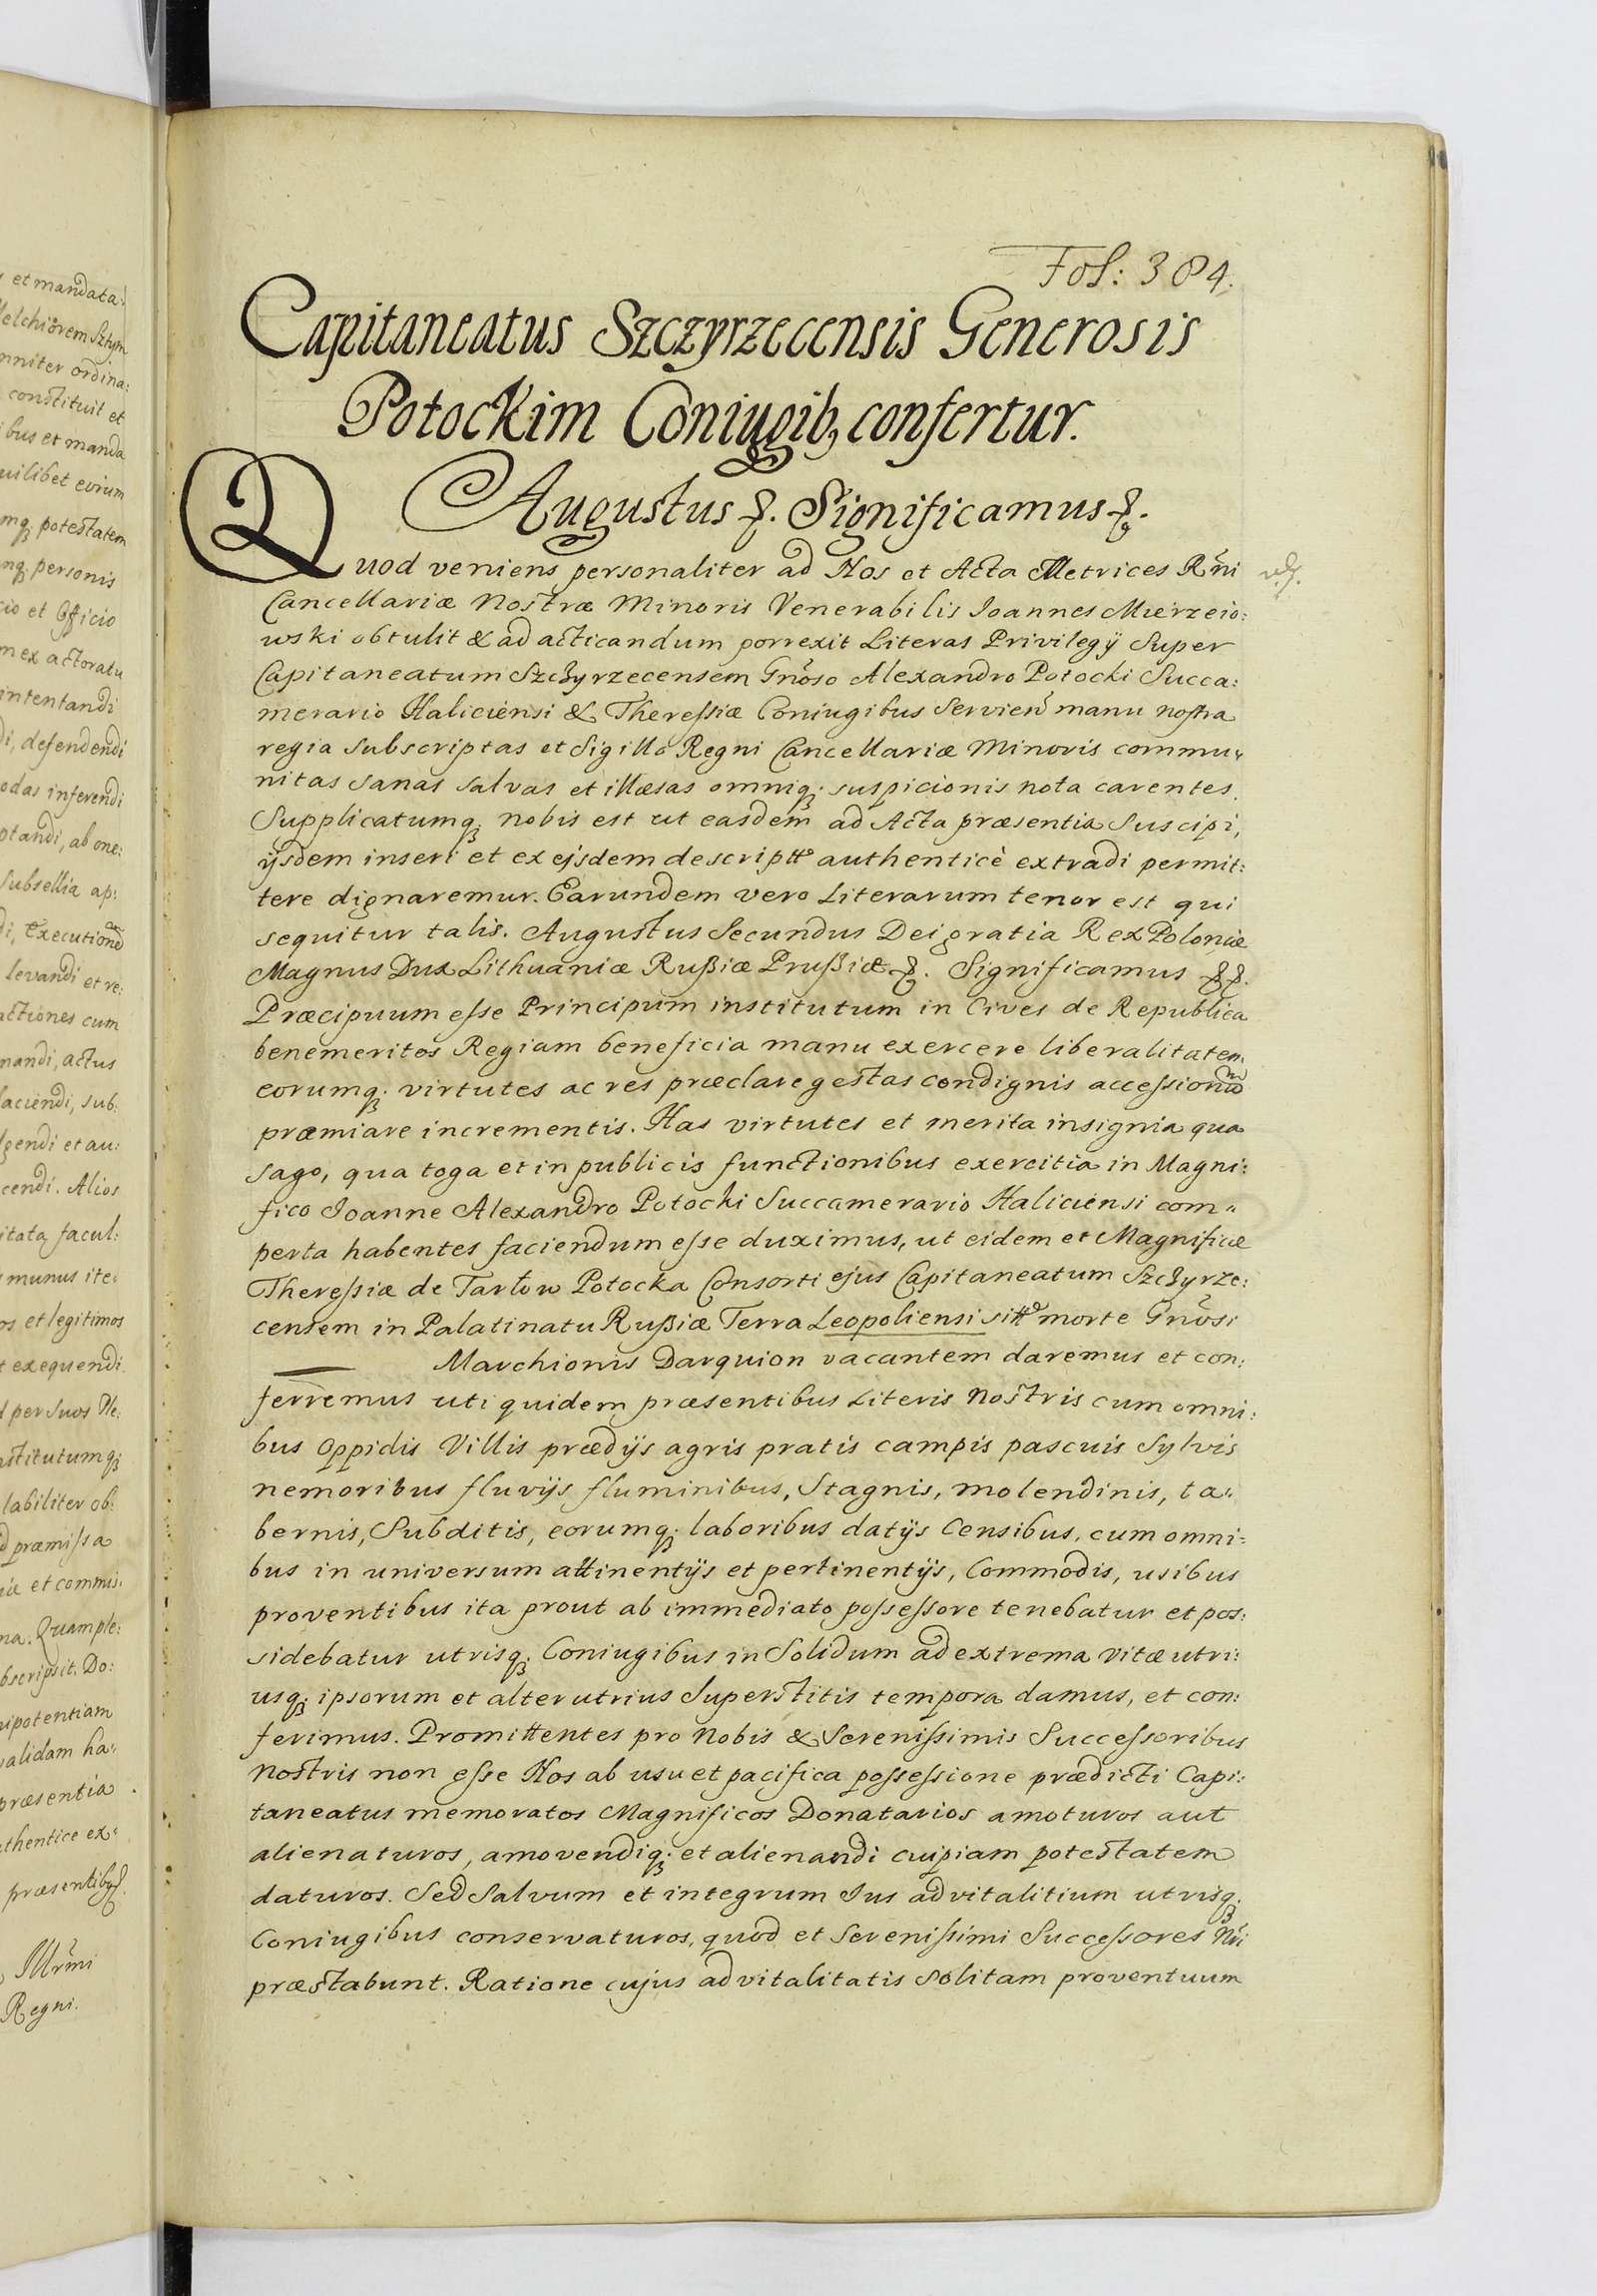 et mandata
Melchiorem Sztym
nniter ordina:
constituit et
bus et manda
uilibet eorum
mq; potestatem
nq; personis
cio et Officio
m ex actoratu
intentandi
di, defendendi
odas inferendi
ptandi, ab one:
Subsellia ap:
di, Executione
levandi et re:
actiones cum
nandi, actus
faciendi, sub:
lgendi et au:
cendi. Alios
itata facul:
munus ite:
os et legitimos
t exequendi.
per suos Ple:
stitutumq;
labiliter ob:
præmissa
et commis:
na. Quample:
bscripsit. Do:
nipotentiam
validam ha:
præsentia
uthentice ex:
præsentibq
Illrmi
Regni.
Fol: 384.
Capitaneatus Szczyrzecensis Generosis
Potockim Coniugib, confertur.
Augustus &. Significamus &.
Quod veniens personaliter ad Nos et Acta Metrices Rñi
Cancellariæ Nostræ Minoris Venerabilis Ioannes Mierzeio:
wski obtulit & ad acticandum porrexit Literas Privilegÿ Super
Capitaneatum Szczyrzecensem Gnõso Alexandro Potocki Succa:
merario Haliciensi & Theressiæ Coniugibus Servien manu nostra
regia subscriptas et Sigillo Regni Cancellariæ Minoris commu:
nitas sanas salvas et illæsas omniq; suspicionis nota carentes.
Supplicatumq; nobis est ut easdem ad Acta præsentia Suscipi,
ijsdem inseri et ex eisdem descriptto authenticè extradi permit:
tere dignaremur. Earundem vero Literarum tenor est qui
sequitur talis. Augustus Secundus Dei gratia Rex Poloniæ
Magnus Dux Lithuaniæ Rußiæ Prußiæ &. Significamus &&.
Præcipuum esse Principum institutum in Cives de Republica
benemeritos Regiam beneficia manu exercere liberalitatem
eorumq; virtutes ac res præclare gestas condignis accessionum
præmiare incrementis. Has virtutes et merita insignia qua
sago, qua toga et in publicis functionibus exercitia in Magni:
fico Ioanne Alexandro Potocki Succamerario Haliciensi com:
perta habentes faciendum esse duximus, ut eidem et Magnificæ
Theressiæ de Tarłow Potocka Consorti ejus Capitaneatum Szczyrze:
censem in Palatinatu Rußiæ Terra Leopoliensi sitto morte Gnõsi
Marchionis Darquion vacantem daremus et con:
ferremus uti quidem præsentibus Literis Nostris cum omni:
bus Oppidis Villis prædijs agris pratis campis pascuis Sylvis
nemoribus fluvijs fluminibus, Stagnis, molendinis, ta:
bernis, Subditis, eorumq; laboribus datijs Censibus, cum omni:
bus in universum attinentijs et pertinentijs, Commodis, usibus
proventibus ita prout ab immediato possessore tenebatur et pos:
sidebatur utrisq; Coniugibus in Solidum ad extrema vitæ utri:
usq; ipsorum et alterutrius Superstitis tempora damus, et con:
ferimus. Promittentes pro Nobis & Serenissimis Successoribus
Nostris non esse Nos ab usu et pacifica possessione prædicti Capi:
taneatus memoratos Magnificos Donatarios amoturos aut
alienaturos, amovendiq; et alienandi cuipiam potestatem
daturos. Sed Salvum et integrum Ius advitalitium utrisq;
Coniugibus conservaturos, quod et Serenissimi Successores Nri
præstabunt. Ratione cujus advitalitatis Solitam proventuum